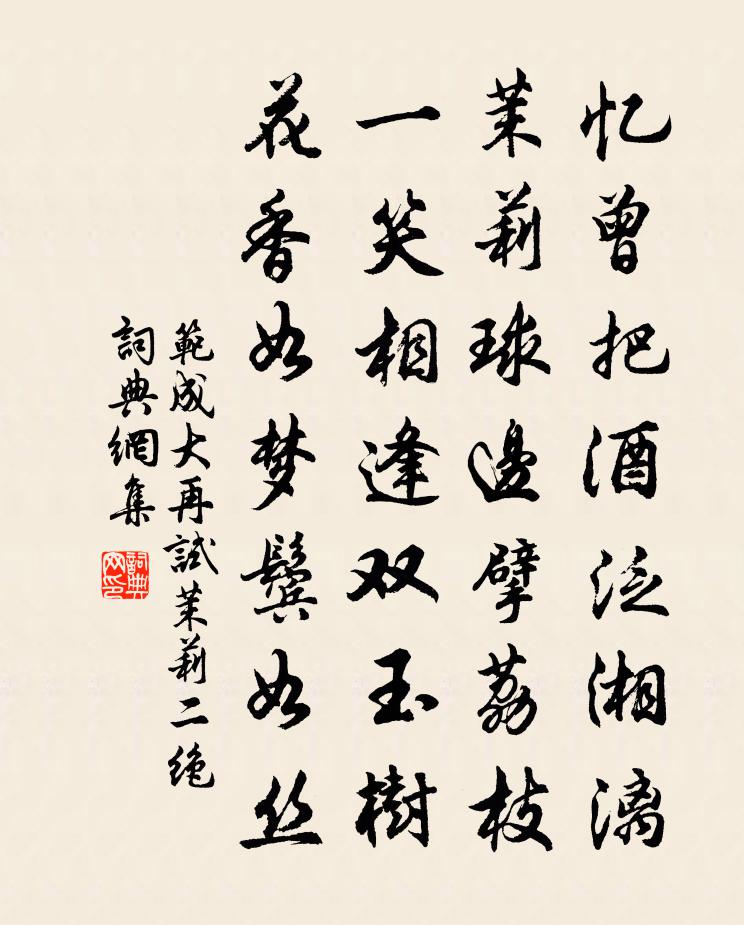 忆曾把酒泛湘漓
茉莉球邊擘荔枝
一笑相逢双玉樹
花香如梦鬓如丝
範成大再試茉莉二绝
詞典網集
詞典网印